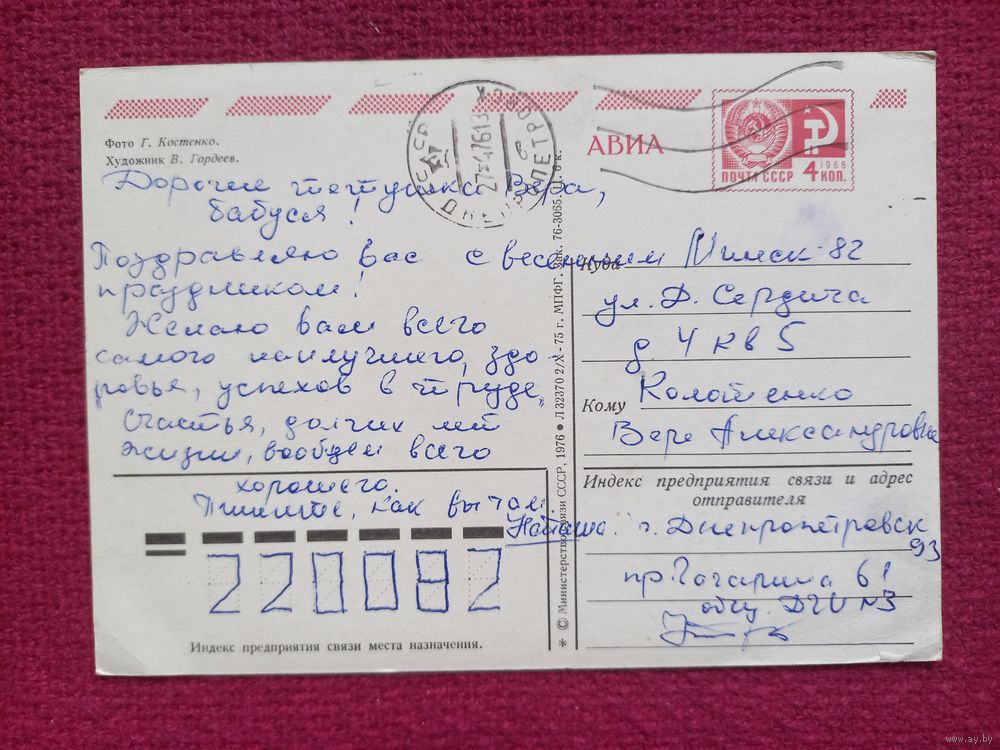 Фото Г. Костенко.
Художник В. Гордеев.
АВИА
ПОЧТА СССР
4 КОП.
1966
УССР ДНЕПРОПЕТРОВСК
27 4 76 13
Дорогие тетушка Вера,
бабуся!
Поздравляю вас с весенним
праздником!
Желаю вам всего
самого наилучшего, здо-
ровья, успехов в труде,
счастья, долгих лет
жизни, вообщем всего
хорошего.
Пишите, как вы там.
Наташа.
220082
Индекс предприятия связи места назначения.
* © Министерство связи СССР, 1976 ● Л 32370 2/X - 75 г. МПФГ. Зак. 76-3065. Ц. 6 к.
Куда Минск-82
ул. Д. Сердича
д. 4 кв 5
Кому Колотенко
Вере Александровне
Индекс предприятия связи и адрес
отправителя
г. Днепропетровск
93
пр Гагарина 61
общ. ДГУ N3
www.ay.by